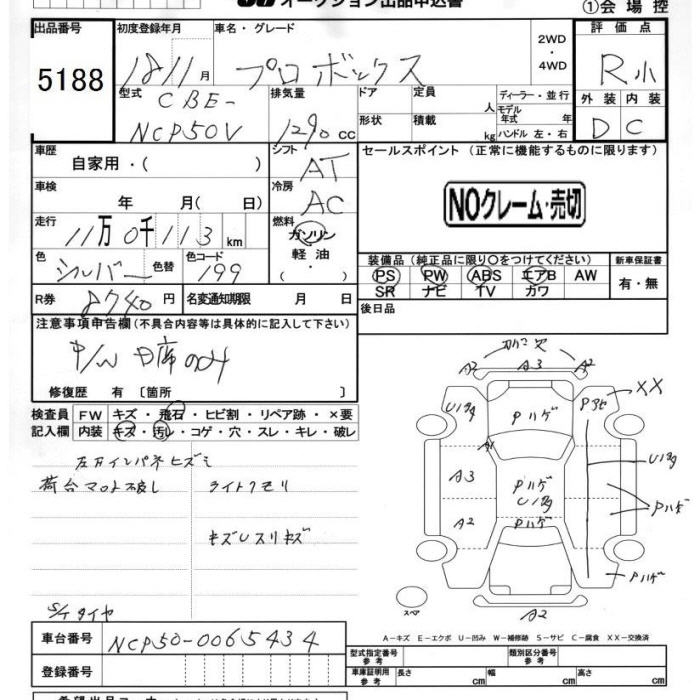 オークション出品申込書
①会場控
出品番号 初度登録年月 車名・グレード 評価点
5188 18 11月 プロボックス 2WD ・ 4WD R小
型式 排気量 ドア 定員 人 ディーラー・並行 外装 内装
CBE- モデル年式 年
NCP50V 1290 cc 形状 積載 kg ハンドル 左・右 D C
車歴 シフト セールスポイント (正常に機能するものに限ります)
自家用・( ) AT
車検 冷房 NOクレーム・売切
年 月( 日) AC
走行 燃料
11万0千113 km ガソリン
色 色替 色コード 軽油 装備品(純正品に限り○をつけてください) 新車保証書
シルバー 199 ( ・ ) PS PW ABS エアB AW 有・無
SR ナビ TV カワ
R券 8740円 名変通知期限 月 日 後日品
注意事項申告欄(不具合内容等は具体的に記入して下さい)
P/W D席のみ
修復歴 有 〔箇所 〕
検査員 FW キズ・飛石・ヒビ割・リペア跡・×要
記入欄 内装 キズ・汚レ・コゲ・穴・スレ・キレ・破レ
A2 A3 A2
XX
Pハゲ
A1
A3 Pハゲ
A2 Pハゲ Pハゲ
Pハゲ
ライトクモリ
キズUスリキズ
S/Tタイヤ スペア A2
A－キズ E－エクボ U－凹み W－補修跡 S－サビ C－腐食 XX－交換済
車台番号 NCP50-0065434
型式指定番号 参考 類別区分番号 参考
登録番号 車庫証明用 参考 長さ cm 幅 cm 高さ cm